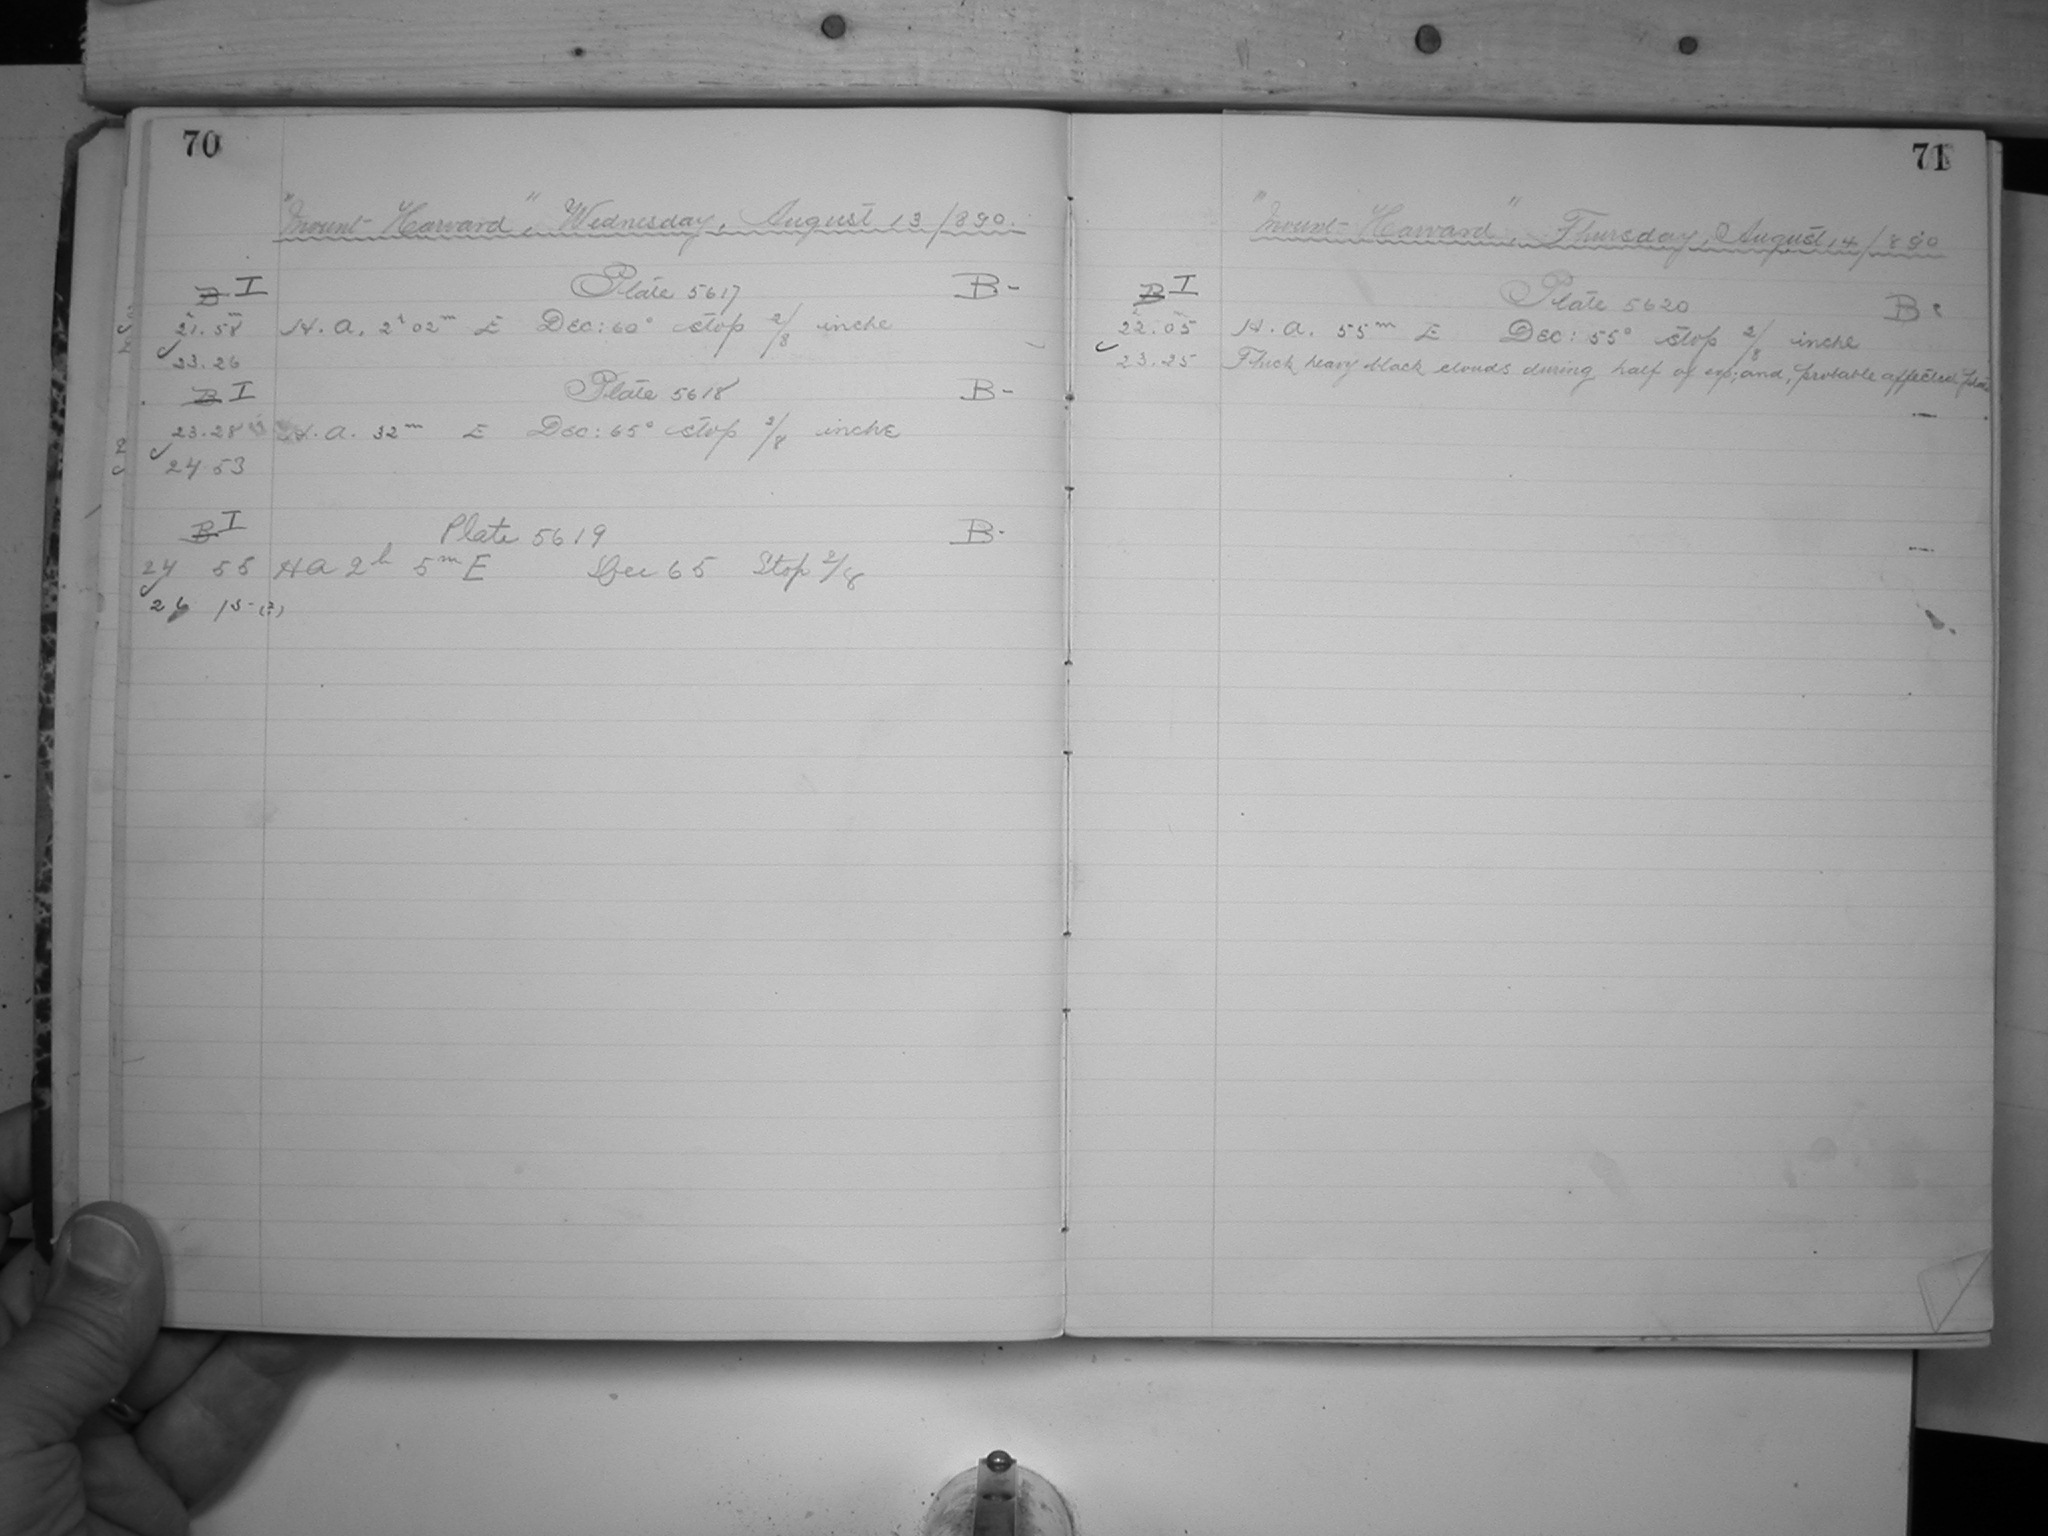 70
"Mount Harvard", Wednesday, August 13/890.
B I Plate 5617 B-
21h.58m H.A. 2h 02m E Dec: 60° stop 2/8 inche
23.26
B I Plate 5618 B-
23.28 H.A. 32m E Dec: 65° stop 2/8 inche
24 53
B I Plate 5619 B-
24 55 HA 2h 5m E Dec 65 Stop 2/8
26 15-(?)
71
"Mount Harvard", Thursday, August 14/890
B I Plate 5620 B
22h.05m H.A. 55m E Dec: 55° stop 2/8 inche
23.25 Thick heavy black clouds during half of exp; and, probable affected plate